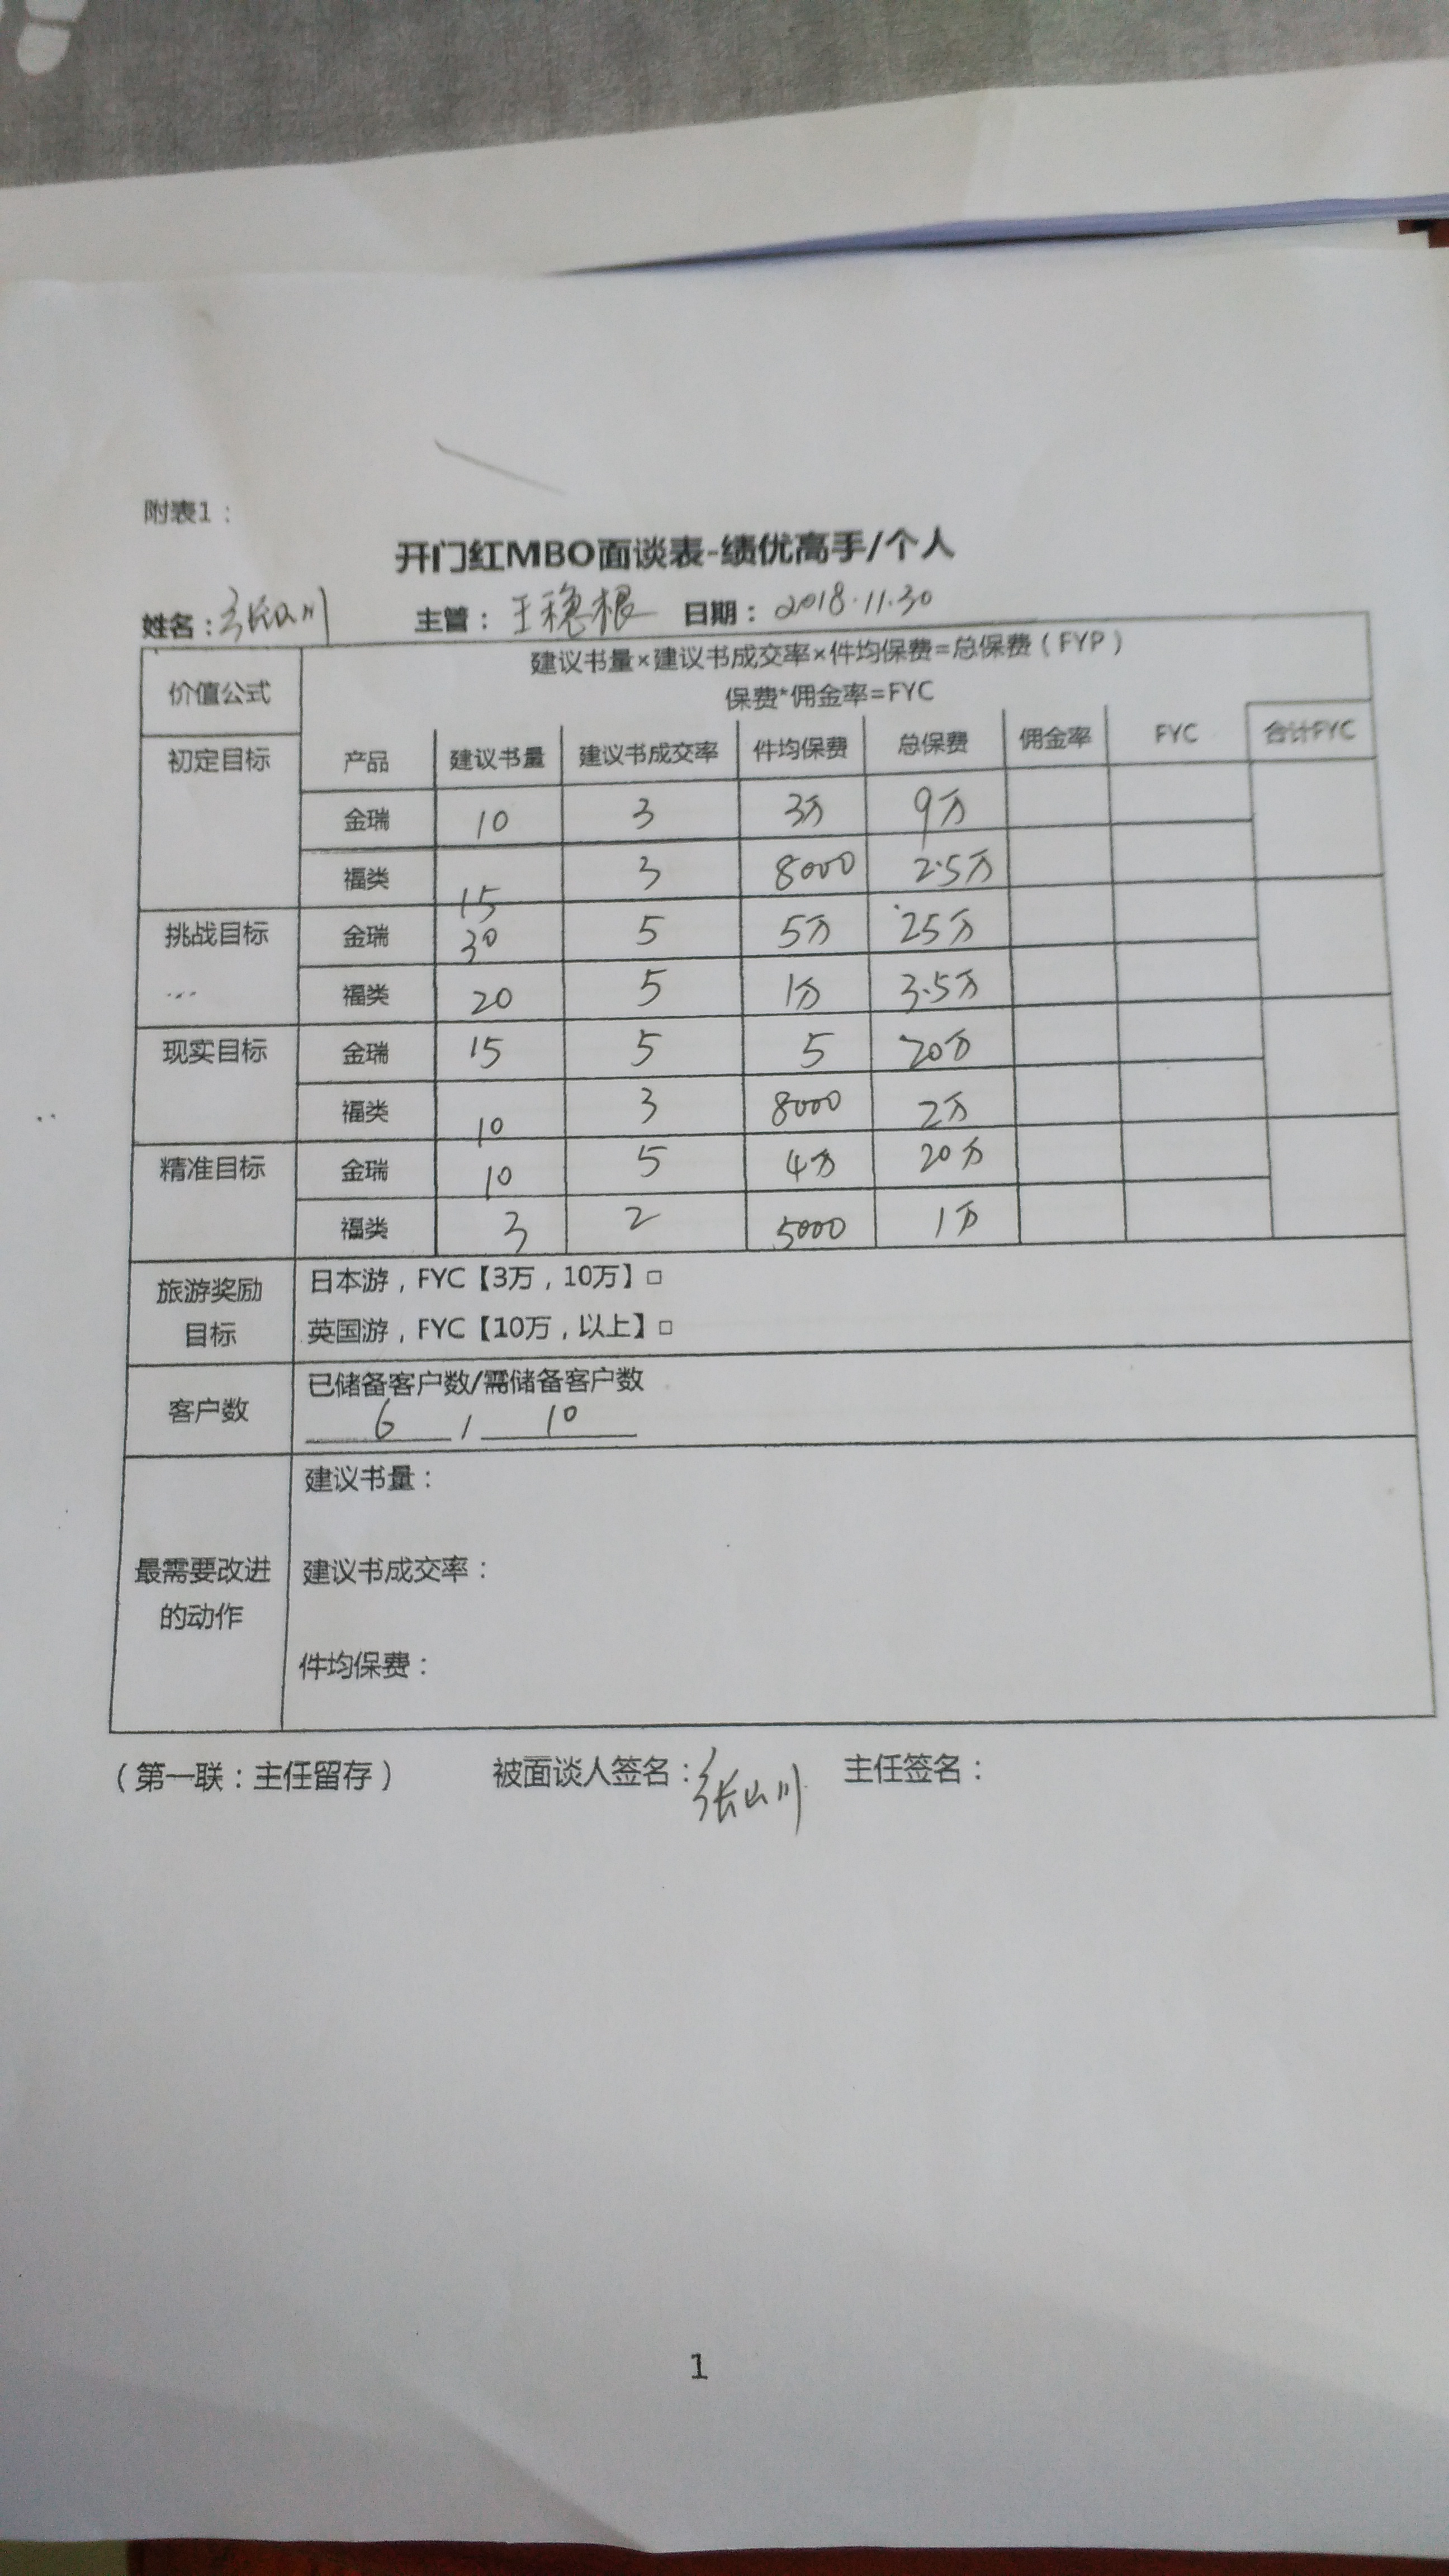 附表1：
开门红MBO面谈表-绩优高手/个人
姓名：张山川 主管：王穗根 日期：2018.11.30
价值公式 建议书量×建议书成交率×件均保费=总保费（FYP）
保费*佣金率=FYC
初定目标 产品 建议书量 建议书成交率 件均保费 总保费 佣金率 FYC 合计FYC
金瑞 10 3 3万 9万
福类 15 3 8000 2.5万
挑战目标 金瑞 30 5 5万 25万
... 福类 20 5 1万 3.5万
现实目标 金瑞 15 5 5 20万
福类 10 3 8000 2万
精准目标 金瑞 10 5 4万 20万
福类 3 2 5000 1万
旅游奖励目标 日本游，FYC【3万，10万】□
英国游，FYC【10万，以上】□
客户数 已储备客户数/需储备客户数
6 / 10
最需要改进的动作 建议书量：
建议书成交率：
件均保费：
（第一联：主任留存） 被面谈人签名：张山川 主任签名：
1